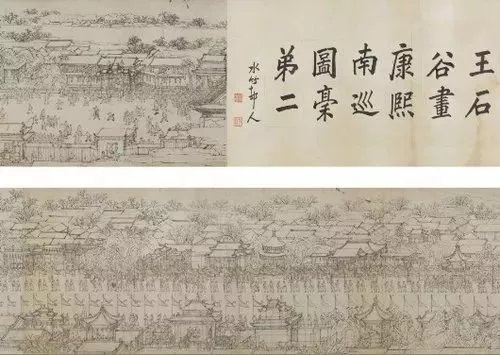 王石
谷畫
康熙
南巡
圖稾
第二
水竹邨人